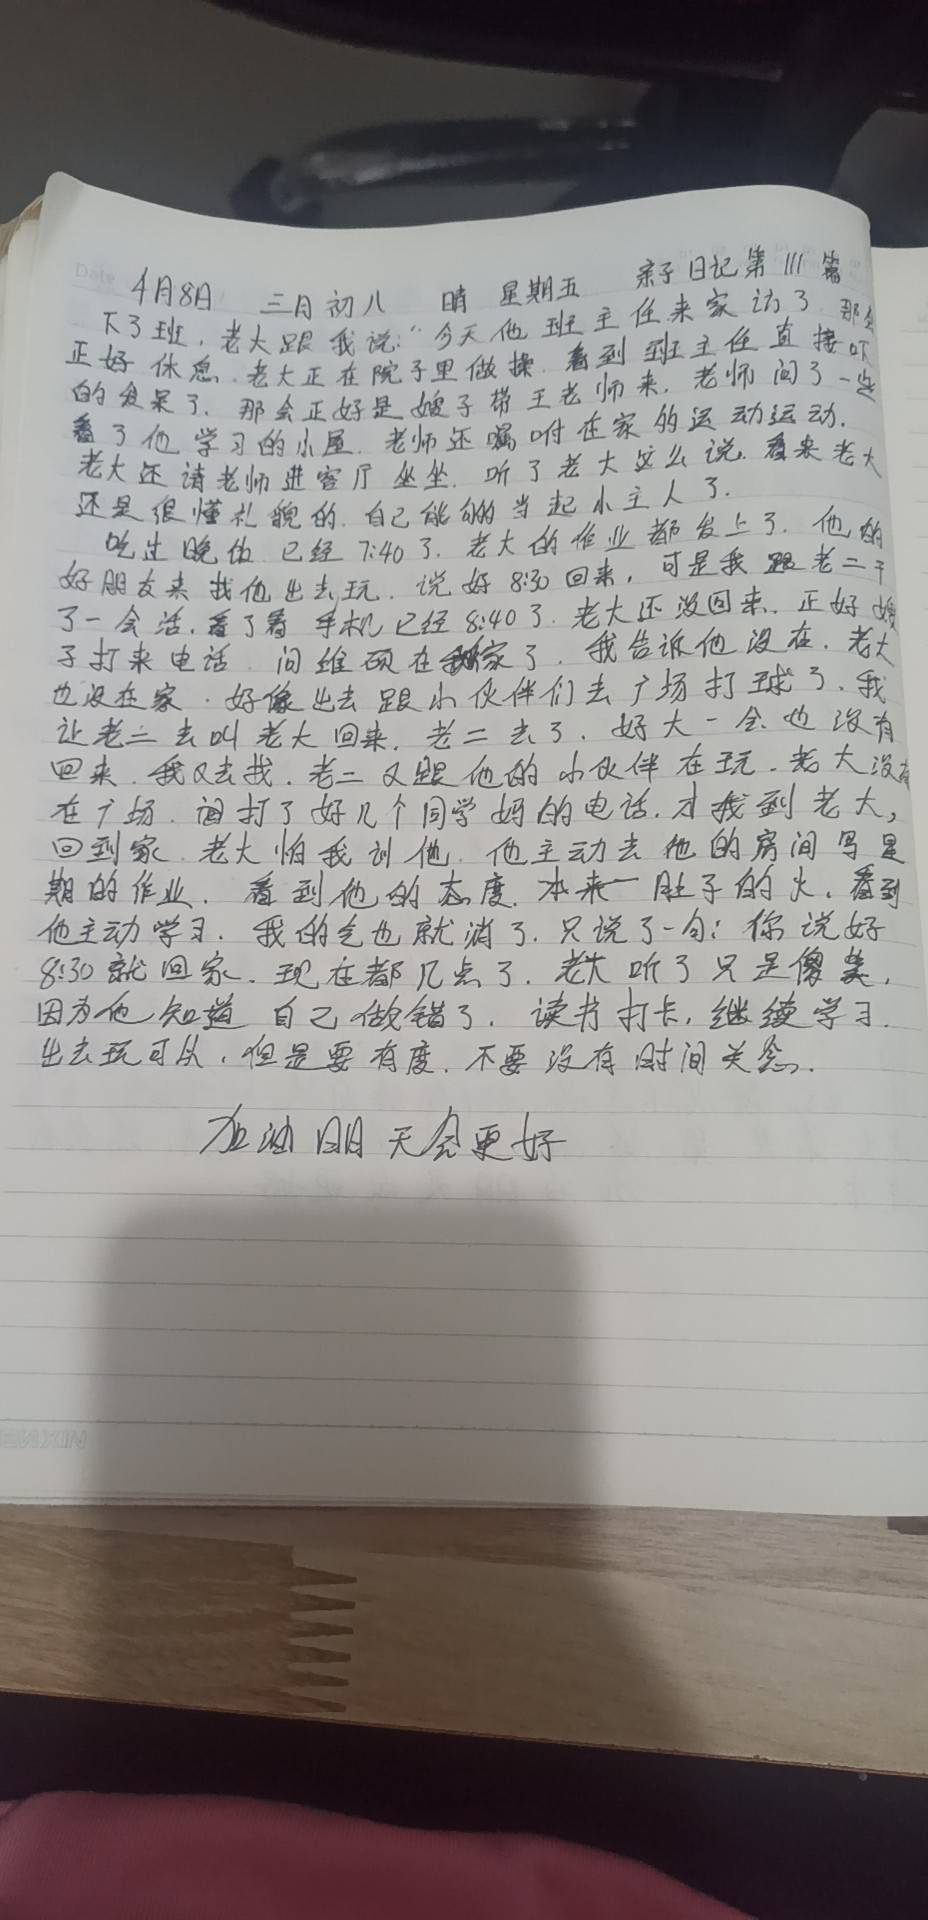 Date
4月8日 三月初八 晴 星期五 亲子日记第111篇
下了班,老大跟我说:“今天他班主任来家访了.那会
正好休息.老大正在院子里做操.看到班主任直接吓
的发呆了.那会正好是嫂子带王老师来.老师问了一些
看了他学习的小屋.老师还嘱咐在家的运动运动.
老大还请老师进客厅坐坐.听了老大这么说.看来老大
还是很懂礼貌的.自己能够当起小主人了.
吃过晚饭已经7:40了.老大的作业都发上了.他的
好朋友来找他出去玩.说好8:30回来,可是我跟老二干
了一会活.看了看手机已经8:40了.老大还没回来.正好嫂
子打来电话.问维硕在家了.我告诉他没在.老大
也没在家.好像出去跟小伙伴们去广场打球了.我
让老二去叫老大回来.老二去了.好大一会也没有
回来.我又去找.老二又跟他的小伙伴在玩.老大没有
在广场.询打了好几个同学妈的电话.才找到老大,
回到家.老大怕我训他.他主动去他的房间写星
期的作业.看到他的态度.本来一肚子的火.看到
他主动学习.我的气也就消了.只说了一句:你说好
8:30就回家.现在都几点了.老大听了只是傻笑,
因为他知道自己做错了.读书打卡,继续学习.
出去玩可以,但是要有度.不要没有时间关念.
加油明天会更好